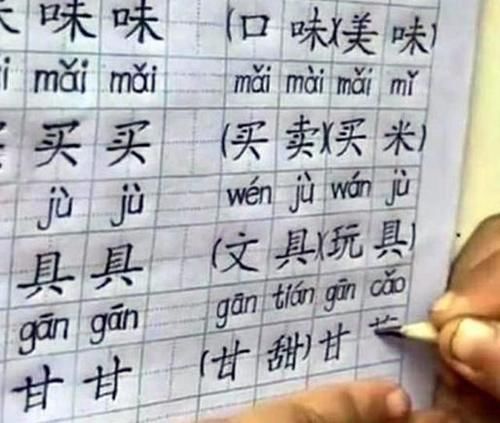 味 味 (口 味)(美 味)
mǎi mǎi mǎi mài mǎi mǐ
买 买 (买 卖)(买 米)
jù jù wén jù wán jù
具 具 (文 具)(玩 具)
gān gān gān tián gān cǎo
甘 甘 (甘 甜) 甘